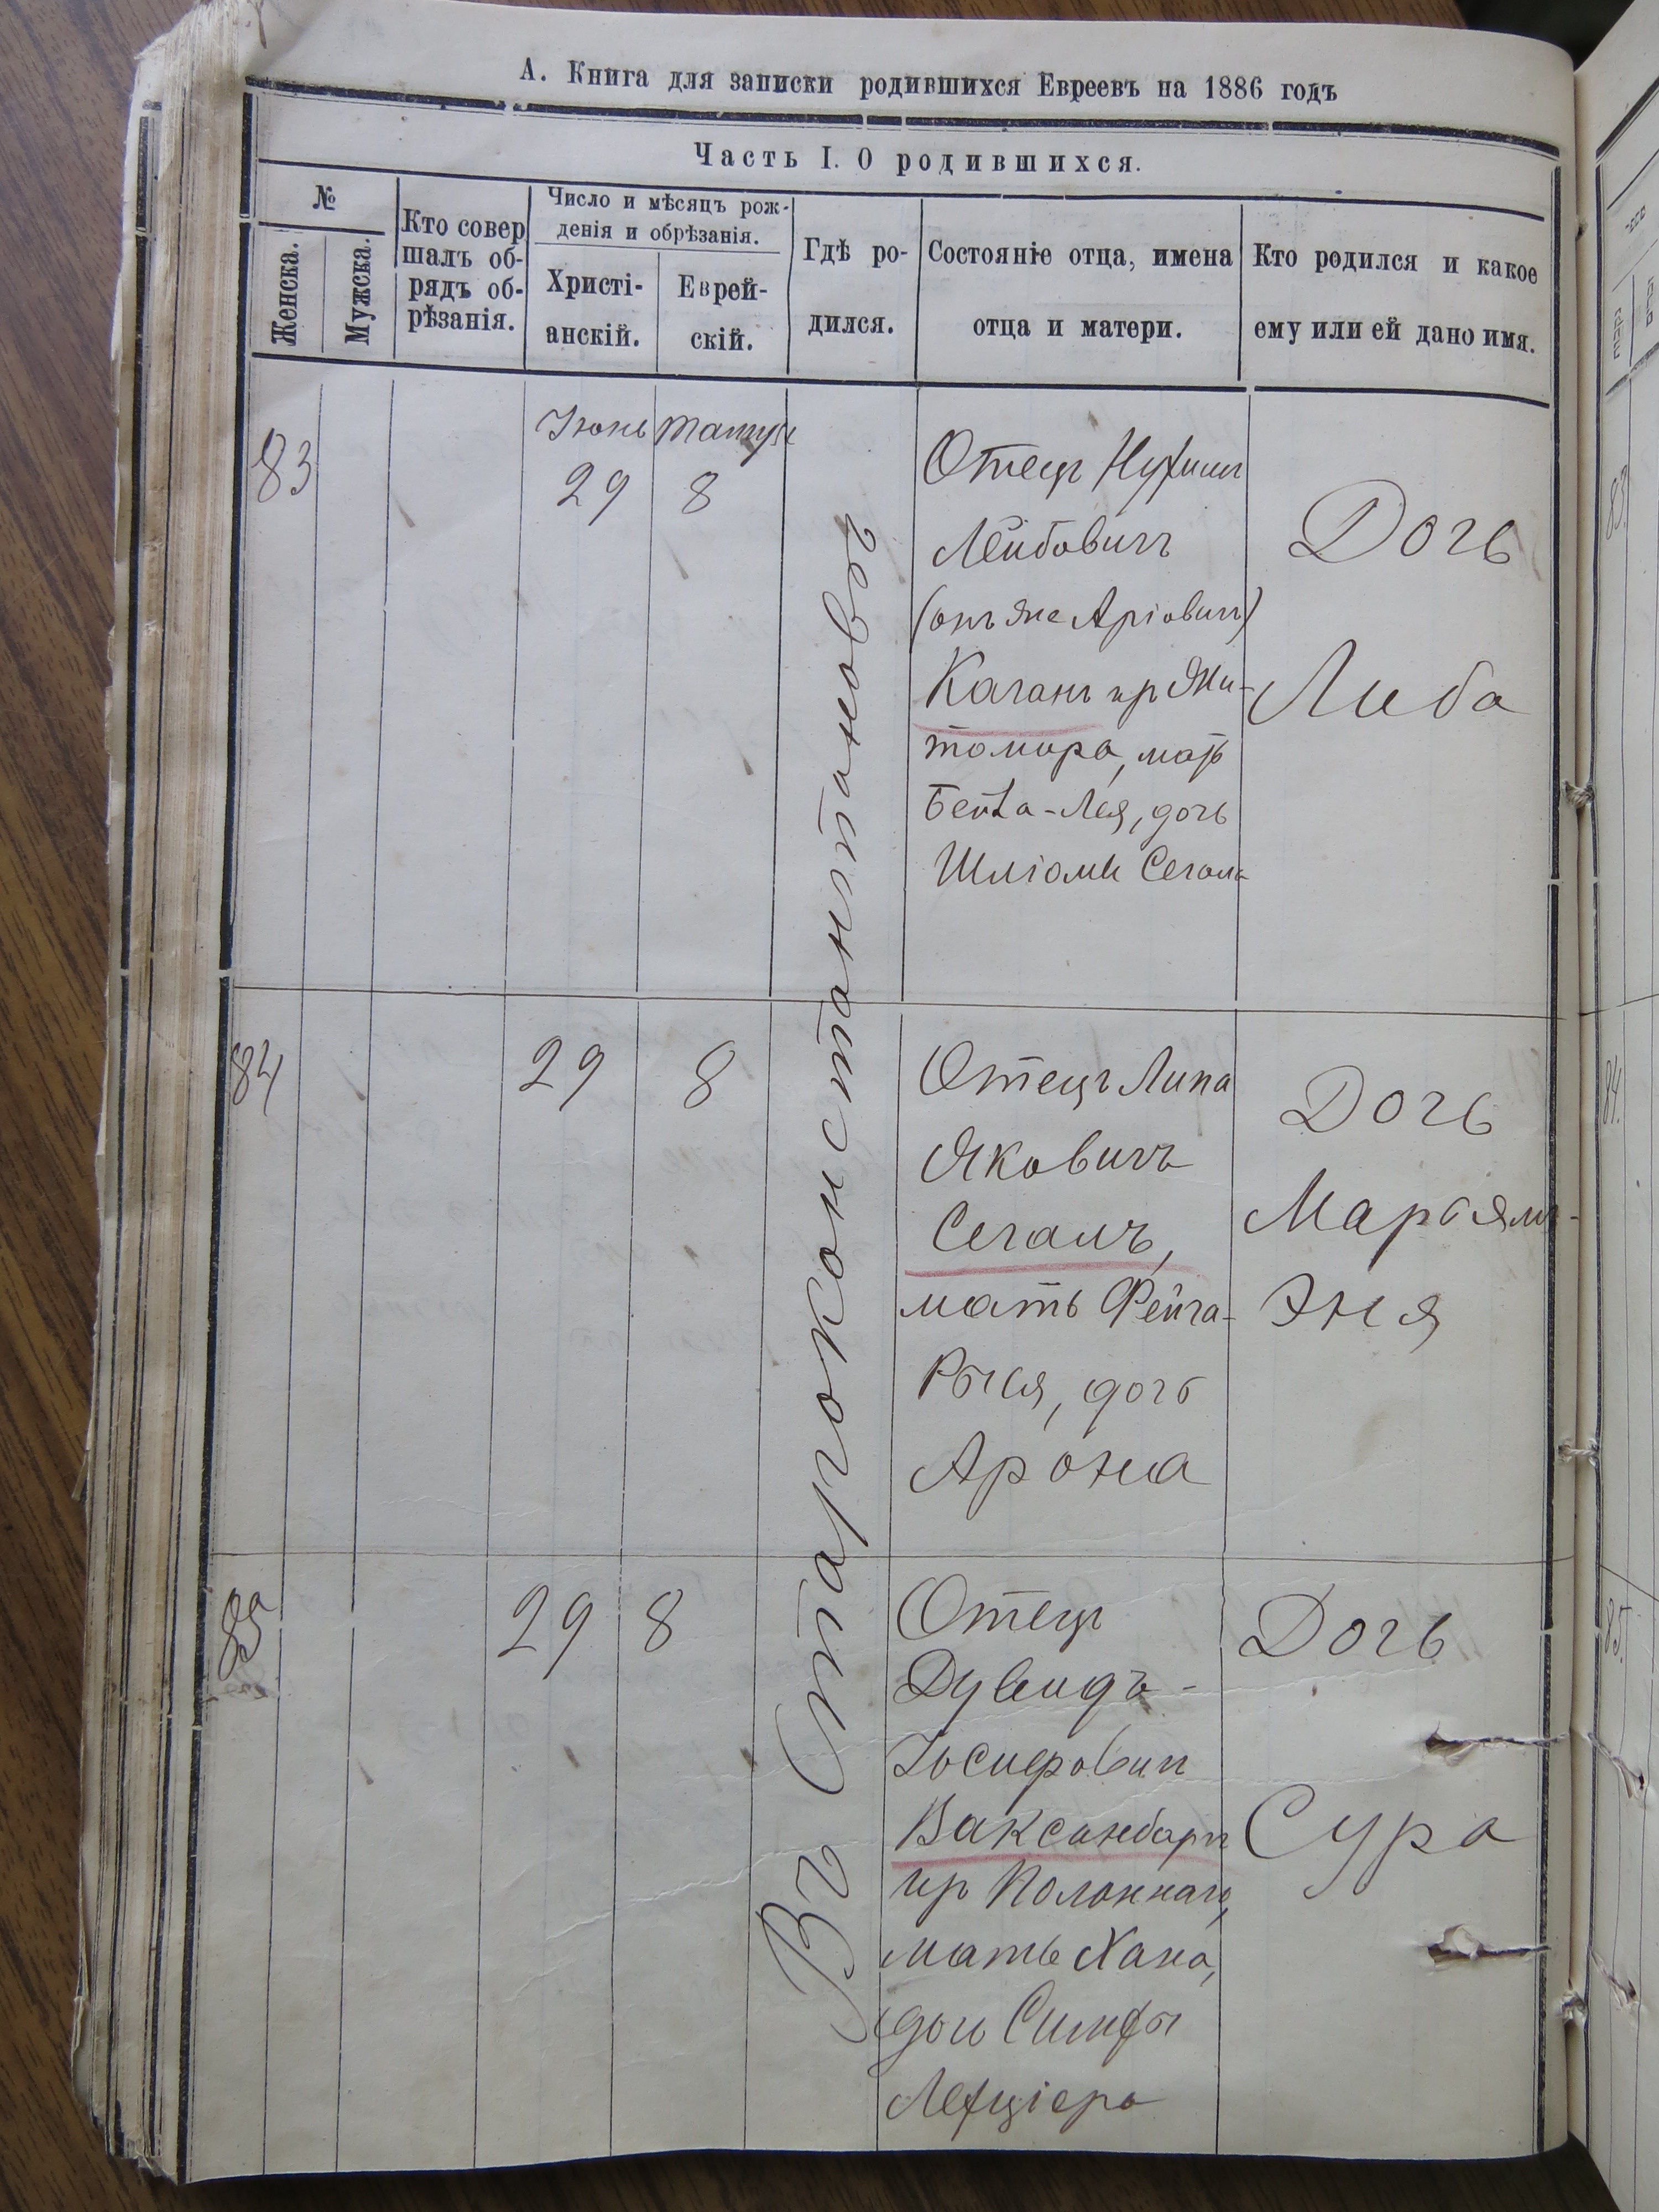 А. Книга для записки родившихся Евреевъ на 1886 годъ
Часть I. О родившихся.
№
Женска.
Мужска.
Кто совер
шалъ об-
рядъ об-
рѣзанія.
Число и мѣсяцъ рож-
денія и обрѣзанія.
Христі-
анскій.
Еврей-
скій.
Гдѣ ро-
дился.
Состояніе отца, имена
отца и матери.
Кто родился и какое
ему или ей дано имя.
83
Іюнь
29
8
Въ Староконстантиновѣ
Отецъ Нухим
Лейбовичъ
(онъ же Аріовичъ)
Каганъ пр Жи-
томира, мать
Бейла-Лея, дочь
Шліомы Сегала
Дочь
Либа
84
29
8
Отецъ Липа
Яковичъ
Сегалъ,
мать Фейга-
Рыся, дочь
Арона
Дочь
Марьямъ-
Эня
85
29
8
Отецъ
Дувидъ-
Іосифовичъ
пр Полоннаго,
мать Хана,
дочь Симхи
Дочь
Сура
83
84
85